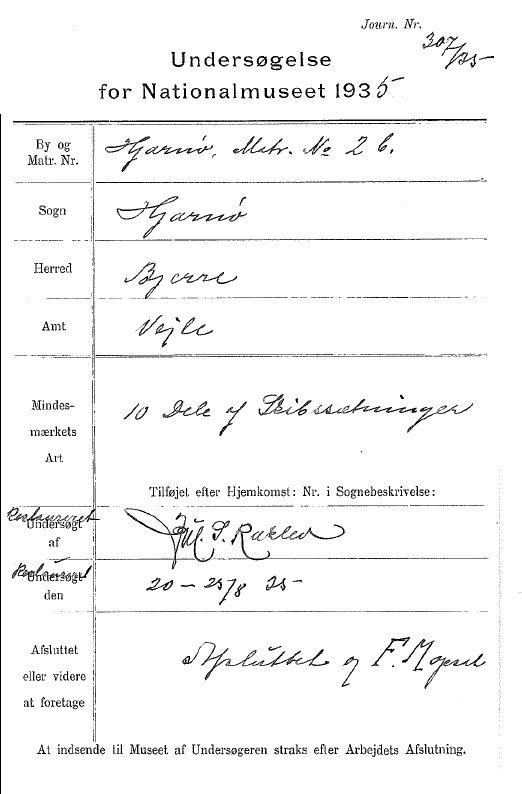 Journ. Nr.
307/35
Undersøgelse
for Nationalmuseet 1935
By og
Matr. Nr.
Hjarnø, Matr. No 2 b.
Sogn
Hjarnø
Herred
Bjerre
Amt
Vejle
Mindes-
mærkets
Art
10 Dele af Skibssætninger
Tilføjet efter Hjemkomst: Nr. i Sognebeskrivelse:
Restaureret
Undersøgt
af
Jul. S. Raklev
Restaureret
Undersøgt
den
20 – 25/8 35
Afsluttet
eller videre
at foretage
Afsluttet og F.
At indsende til Museet af Undersøgeren straks efter Arbejdets Afslutning.